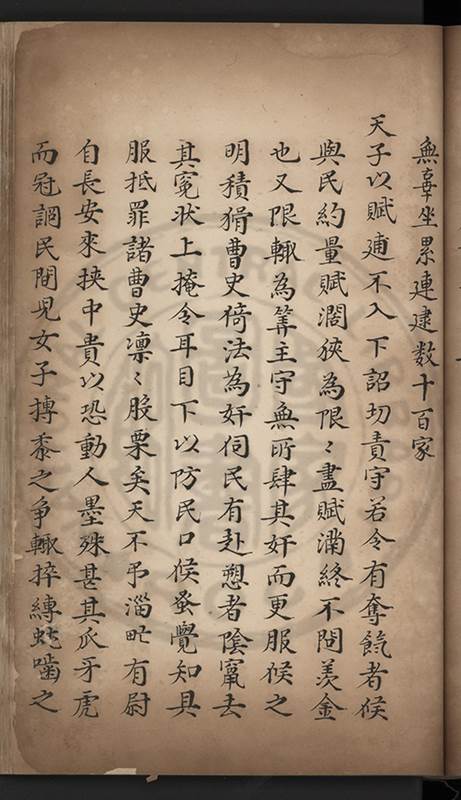 無辜坐累連逮数十百家
天子以賦逋不入下詔切責守若令有奪餼者侯
與民約量賦濶狹為限〻盡賦滿終不問羡金
也又限輙為筭主守無所肆其奸而更服候之
明積猾曹史倚法為奸伺民有赴愬者陰竄去
其寃状上掩令耳目下以防民口侯蚤覺知具
服抵罪諸曹史凛〻股栗矣天不弔淄甿有尉
自長安來挾中貴以恐動人墨殊甚其爪牙虎
而冠調民間児女子摶黍之争輙捽縛虵噛之